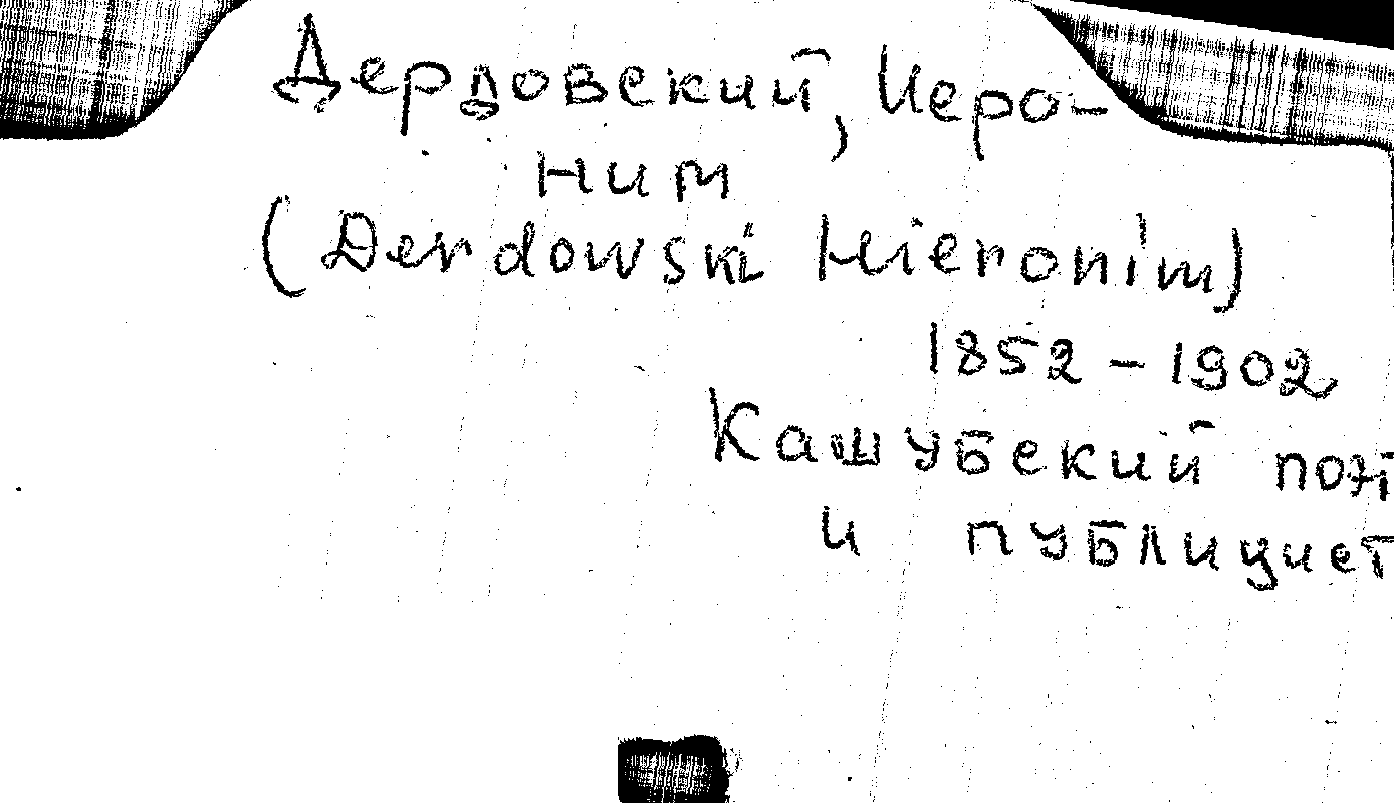 Дердовский, Иеро-
ним
(Derdowski Hieronim)
1852 – 1902
Кашубский поэт
и публицист